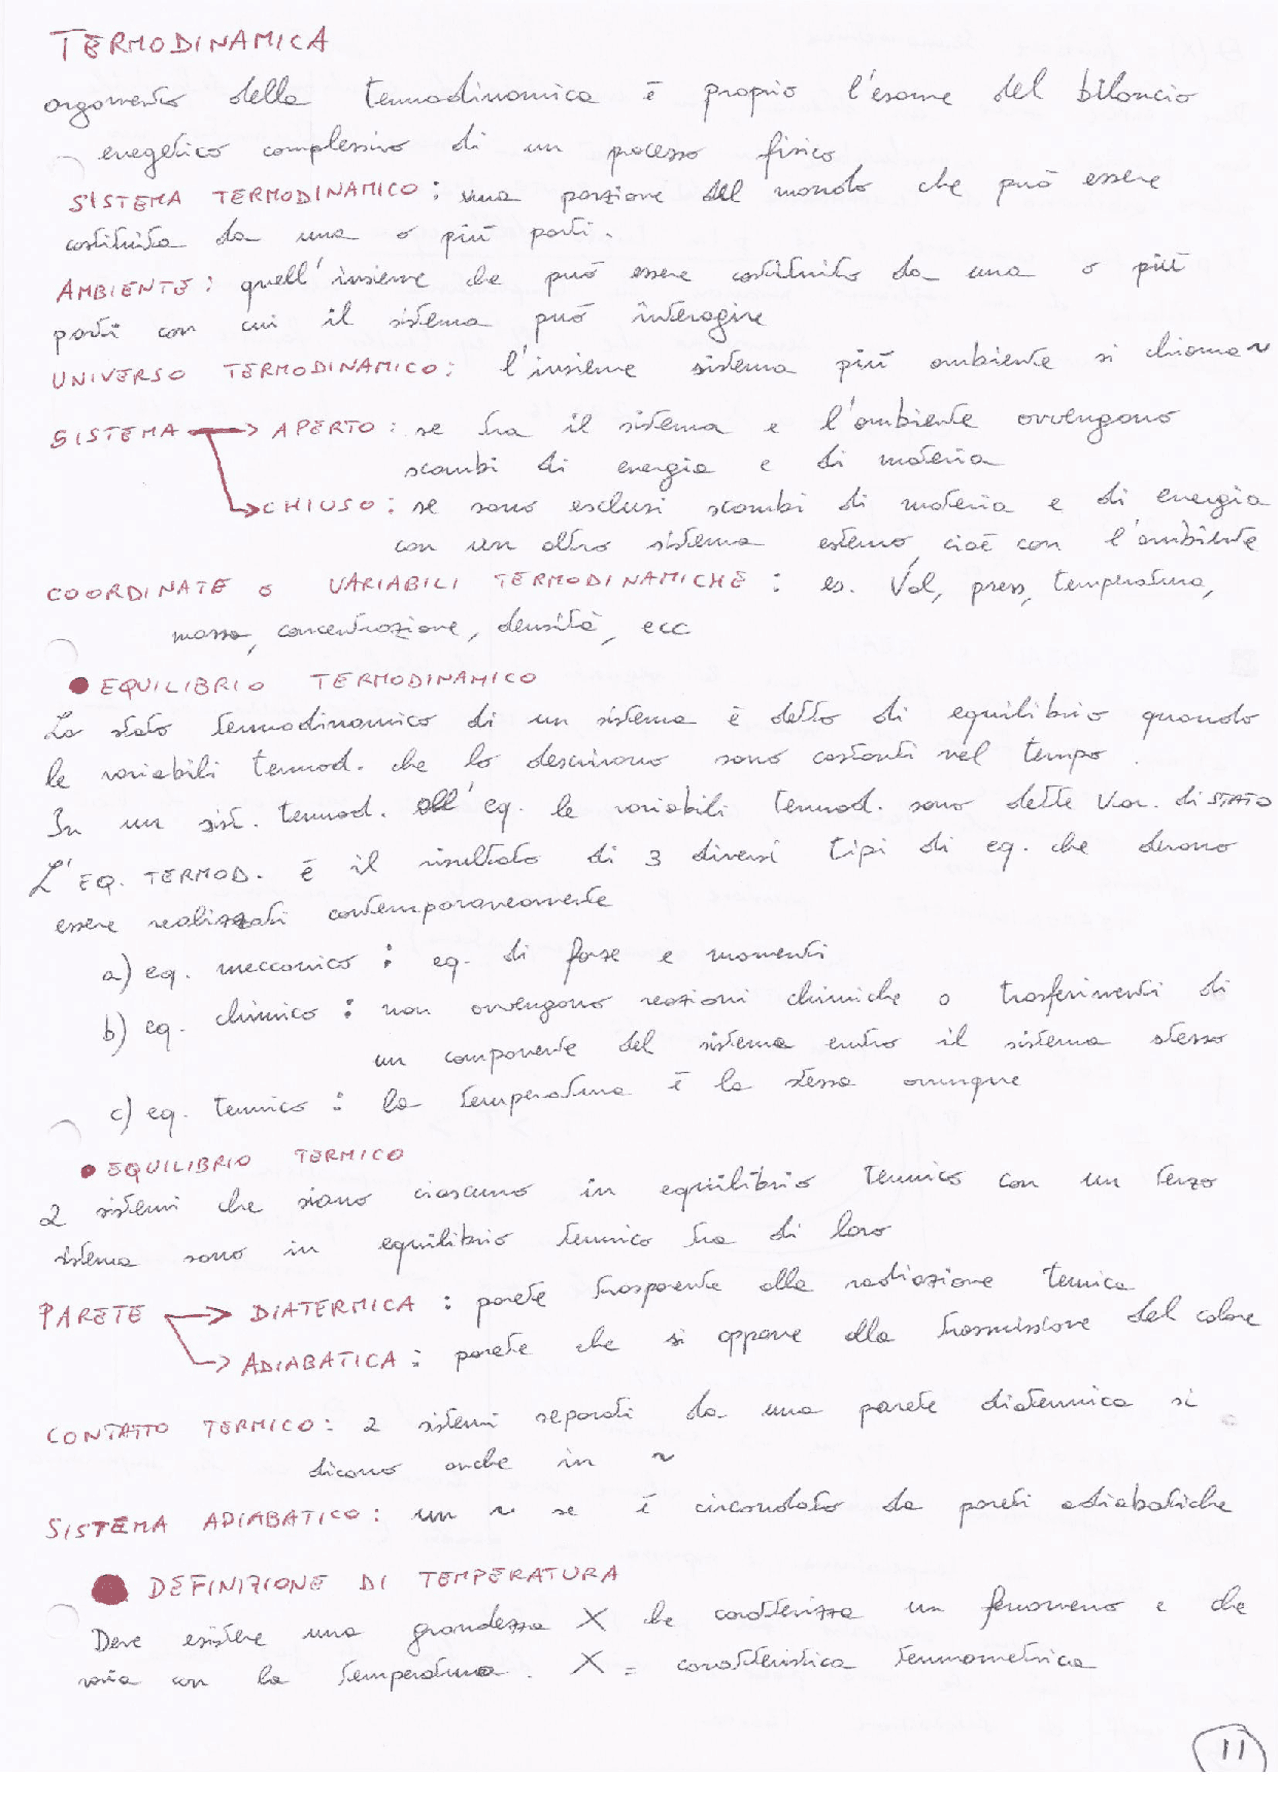 TERMODINAMICA
argomento della termodinamica è proprio l'esame del bilancio
enegetico complessivo di un processo fisico
SISTEMA TERMODINAMICO: una porzione del mondo che può essere
costituita da una o più parti.
AMBIENTE: quell'insieme che può essere costituito da una o più
parti con cui il sistema può interagire
UNIVERSO TERMODINAMICO: l'insieme sistema più ambiente si chiama ~
SISTEMA → APERTO: se tra il sistema e l'ambiente avvengono
scambi di energia e di materia
→ CHIUSO: se sono esclusi scambi di materia e di energia
con un altro sistema esterno, cioè con l'ambiente
COORDINATE o VARIABILI TERMODINAMICHE: es. Vol, press, temperatura,
massa, concentrazione, densità, ecc
● EQUILIBRIO TERMODINAMICO
Lo stato termodinamico di un sistema è detto di equilibrio quando
le variabili termod. che lo descrivono sono costanti nel tempo.
In un sist. termod. all'eq. le variabili termod. sono dette Var. di STATO
L'EQ. TERMOD. è il risultato di 3 diversi tipi di eq. che devono
essere realizzati contemporaneamente
a) eq. meccanico: eq. di forze e momenti
b) eq. chimico: non avvengono reazioni chimiche o trasferimenti di
un componente del sistema entro il sistema stesso
c) eq. termico: la temperatura è la stessa ovunque
● EQUILIBRIO TERMICO
2 sistemi che siano ciascuno in equilibrio termico con un terzo
sistema sono in equilibrio termico tra di loro
PARETE → DIATERMICA: parete trasparente alla radiazione termica
→ ADIABATICA: parete che si oppone alla trasmissione del calore
CONTATTO TERMICO: 2 sistemi separati da una parete diatermica si
dicono anche in ~
SISTEMA ADIABATICO: un ~ se è circondato da pareti adiabatiche
● DEFINIZIONE DI TEMPERATURA
Deve esistere una grandezza X che caratterizza un fenomeno e che
varia con la temperatura. X = caratteristica termometrica
11